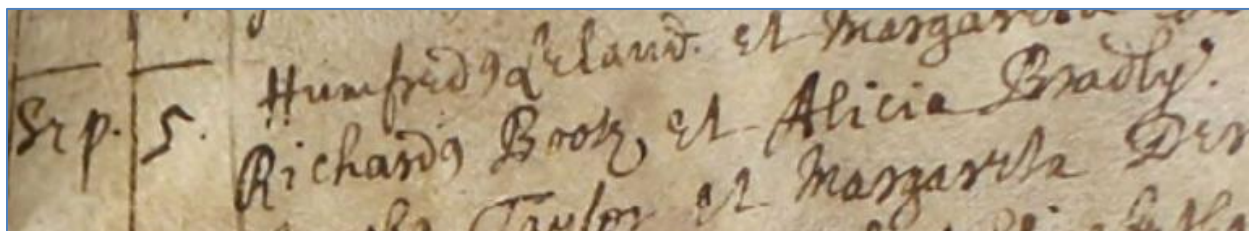 Humfrid9 Leland. et Margareta
Sep. 5. Richard9 Brok et Alicia Bradly.
Taylor et Margareta Der